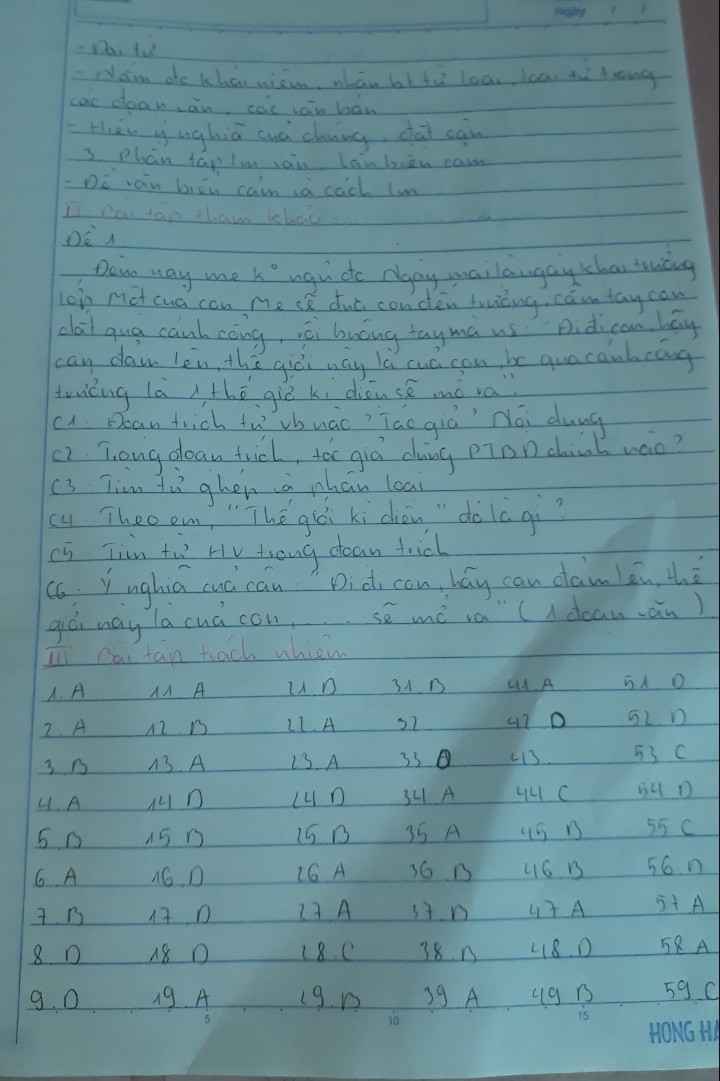 Ngày / /
- Đại từ
- Nắm đc khái niệm, nhận bt từ loại, loại từ trong
các đoạn văn, các văn bản
- Hiểu ý nghĩa của chúng, đặt câu
3. Phần tập lm văn văn biểu cảm
- Đề văn biểu cảm và cách lm
II Bài tập tham khảo
Đề 1
Đêm nay mẹ k° ngủ đc Ngày mai là ngày khai trường
lớp Một của con Mẹ sẽ đưa con đến trường, cầm tay con
dắt qua cánh cổng, rồi buông tay mà ns: "Đi đi con, hãy
can đảm lên, thế giới này là của con, bc qua cánh cổng
trường là 1 thế giớ kì diệu sẽ mở ra".
C1. Đoạn trích từ vb nào? Tác giả? Nội dung
C2. Trong đoạn trích, tác giả dùng PTBĐ chính nào?
C3 Tìm từ ghép và phân loại
C4 Theo em, "Thế giới kì diệu" đó là gì?
C5 Tìm từ HV trong đoạn trích
C6. Ý nghĩa của câu "Đi đi con, hãy can đảm lên, thế
giới này là của con, .... sẽ mở ra" (1 đoạn văn)
III Bài tập trách nhiệm
1. A 11 A 21 D 31 B 41 A 51 D
2. A 12 B 22 A 32 42 D 52 D
3 B 13 A 23 A 33 D 43 53 C
4. A 14 D 24 D 34 A 44 C 54 D
5 B 15 B 25 B 35 A 45 B 55 C
6. A 16 D 26 A 36 B 46 B 56 D
7 B 17 D 27 A 37 D 47 A 57 A
8 D 18 D 28 C 38 D 48 D 58 A
9. D 19 A 29 B 39 A 49 B 59 C
5 10 15
HONG HA